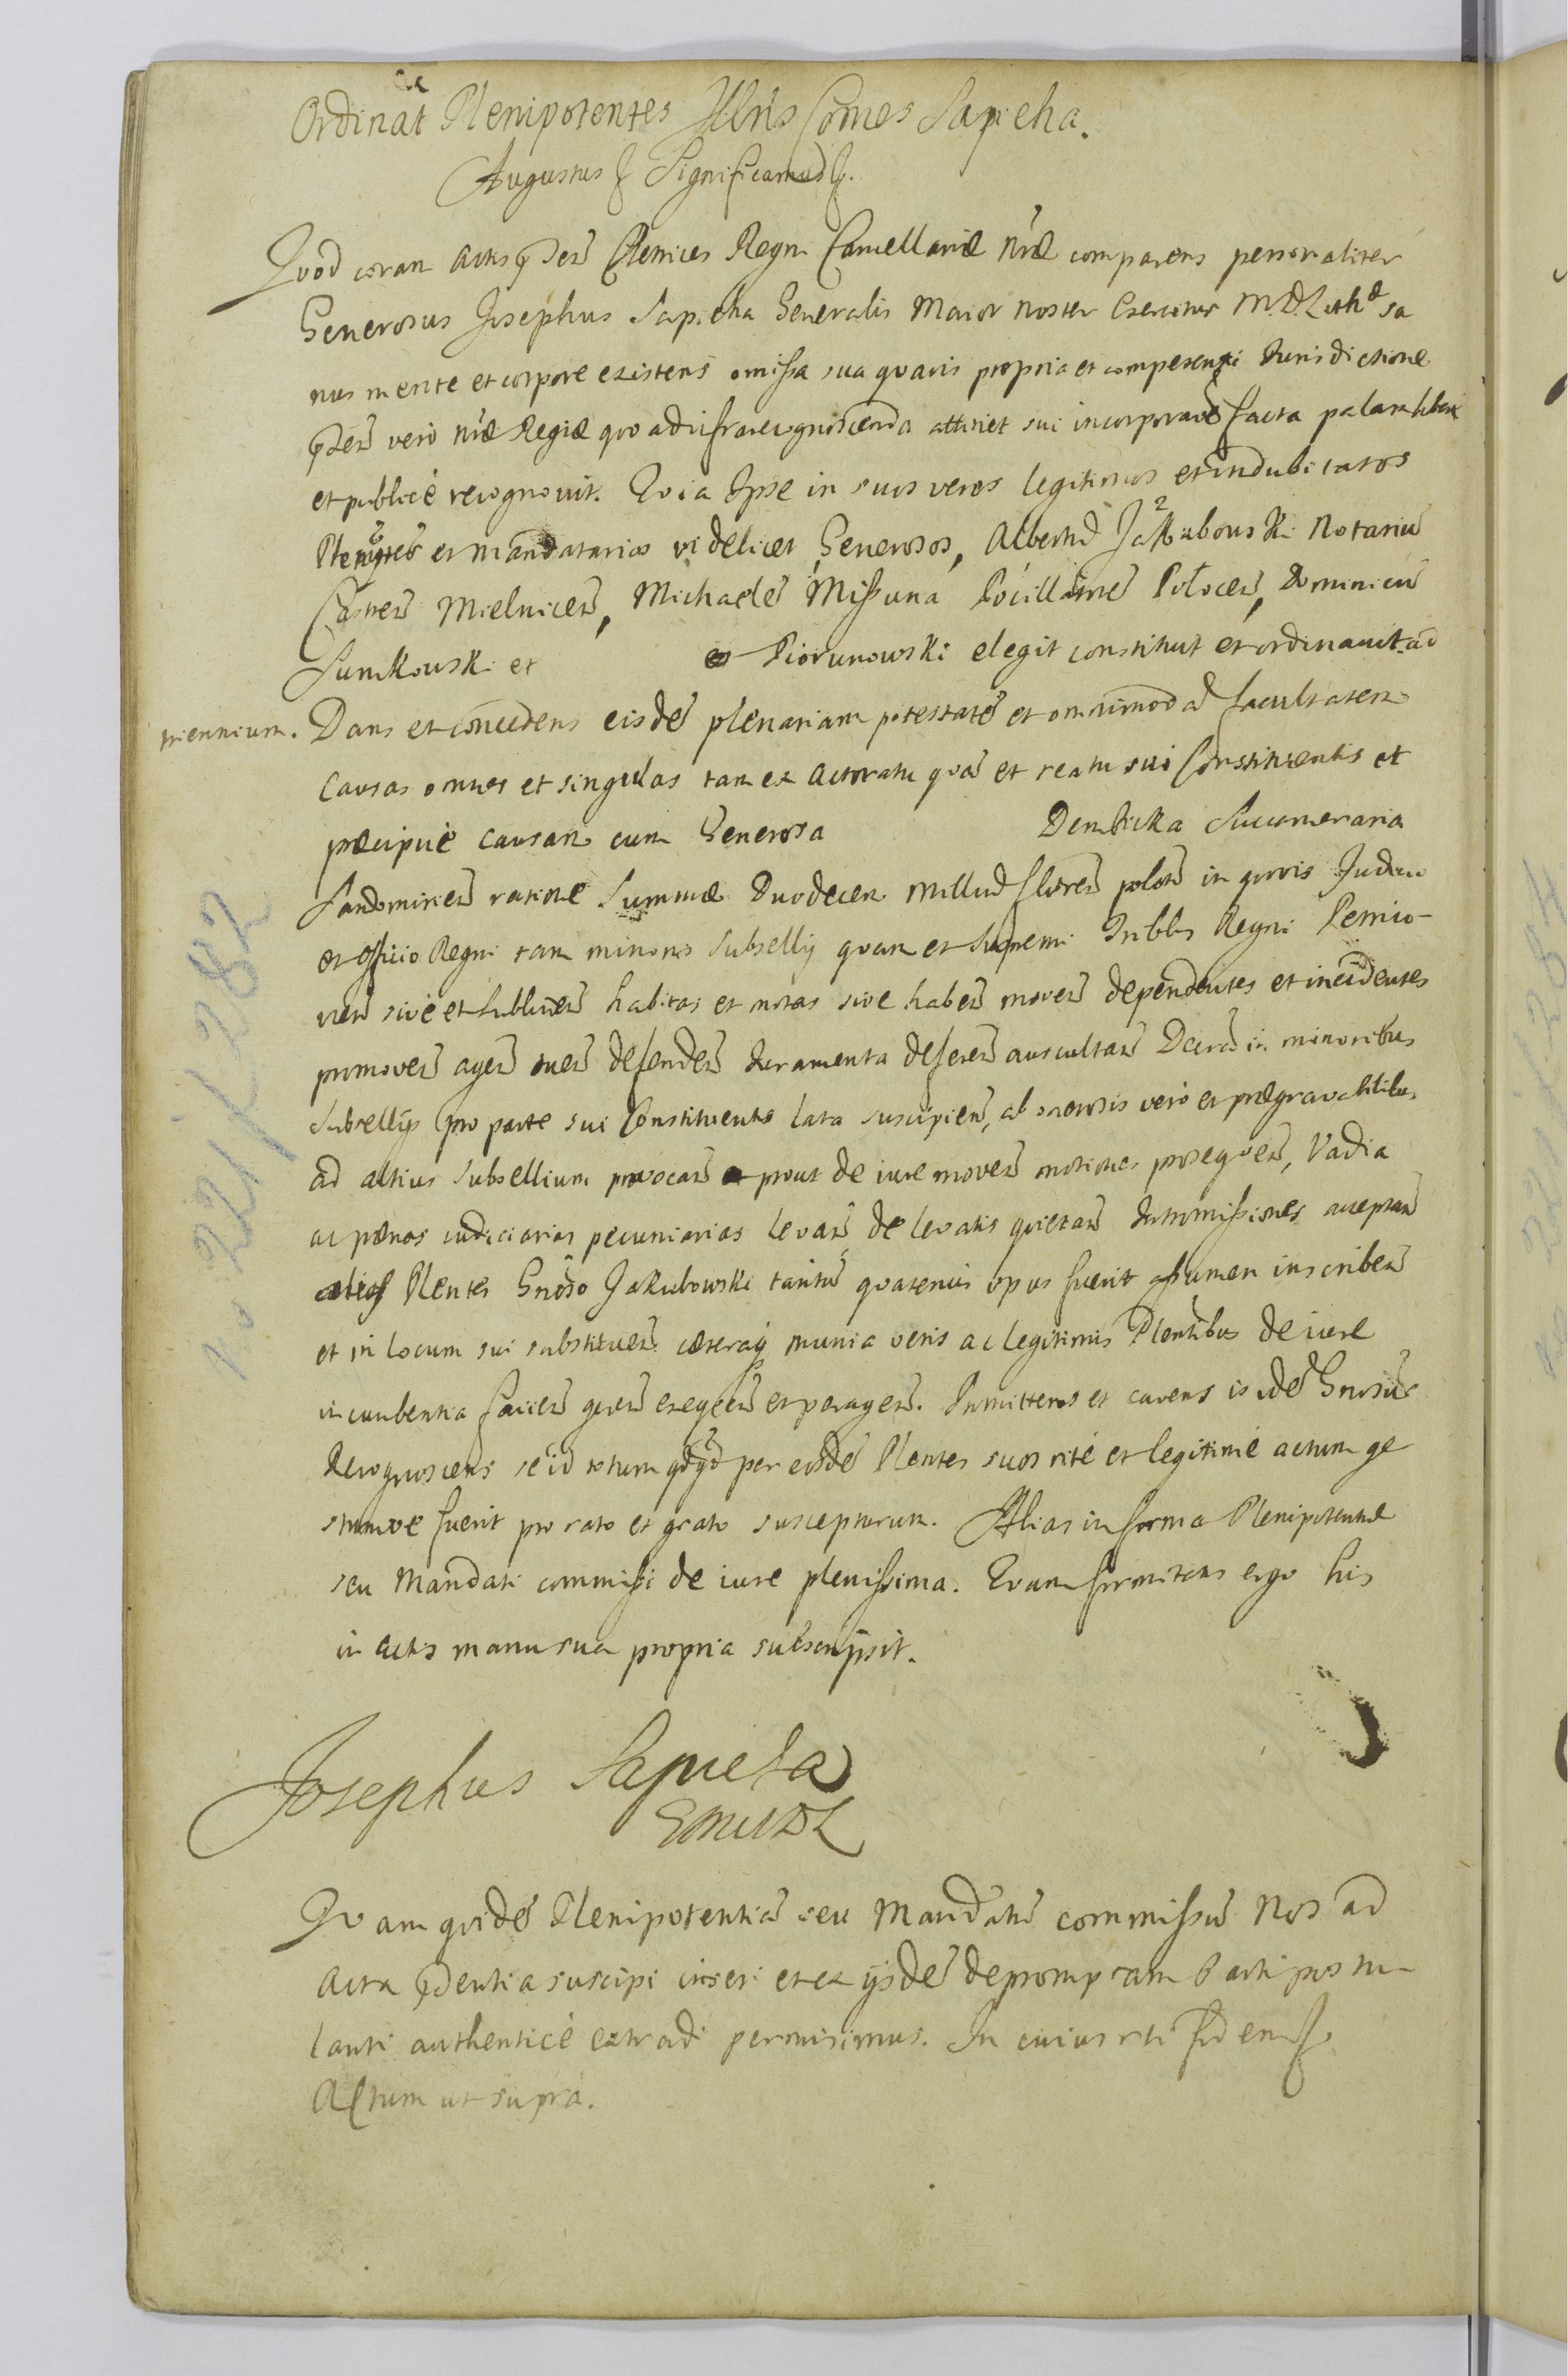 Ordinat Plenipotentes Illris Comes Sapieha.
Augustus Significamus
Quod coram Actis Metrices Regni Cancellariæ nræ comparens personaliter
Generosus Josephus Sapieha Generalis Maior noster Exercitus M.D. Lith. sa
nus mente et corpore existens omissa sua quavis propria et competenti Jurisdictione
vero nræ Regiæ quo ad infra recognoscenda attinet sui incorporaõe facta palam libere
et publicé recognovit. Quia Ipse in suos veros legitimos et indubitatos
Plentes et Mandatarios videlicet Generosos, Albertũ Jakubowski Notariũ
Castreñ Mielniceñ, Michaelẽ Missuna Pocillatorẽ Poloceñ, Dominicũ
Sunkowski et Piorunowski elegit constituit et ordinavit ad
triennium. Dans et concedens eisdẽ plenariam potestatẽ et omnimodã facultatem
causas omnes et singulas tam ex Actoratu quã et reatu sui Constituentis et
præcipué causam cum Generosa Dembicka Succameraria
Sandomirieñ ratione Summæ Duodecem Milliũ floreñ poloñ in quovis Judicio
et officio Regni tam minoris Subsellij quam et Supremi Triblis Regni Petrico-
vieñ sive et Lublineñ habitas et motas sive habeñ moveñ dependentes et incidentes
promoveñ ageñ tueñ defendeñ Juramenta defereñ auscultañ Decrã in minoribus
Subsellijs pro parte sui Constituentis lata suscipieñ, ab onerosis vero et prægravabilibus
ad altius Subsellium provocañ prout de iure moveñ motiones prosequeñ, Vadia
ac pœnas iudiciarias pecuniarias levañ de levatis quietañ Intromissiones acceptañ
alios Plentes Gnoso Jakubowski tantũ quatenus opus fuerit assumen inscribeñ
et in locum sui substitueñ cæteraq munia veris ac legitimis Plentibus de iure
incumbentia facieñ gereñ exeqeñ et perageñ. Promittens et cavens is idẽ Gnosus
Recognoscens se id totum qdqd per eosdẽ Plentes suos rité et legitimé actum ge
stumve fuerit pro rato et grato suscepturum. Alias in forma Plenipotentiæ
seu Mandati commissi de iure plenissima. Quam firmitatis ergo his
in Actis manu sua propria subscripsit.
Josephus Sapieha
GMWXL
Quam quidẽ Plenipotentiã seu Mandatũ commissũ Nos ad
Acta p̃dentia suscipi inseri et ex ijsdẽ depromptam Parti postu-
lanti authenticé extradi permisimus. In cuius rei fidem
Actum ut supra.